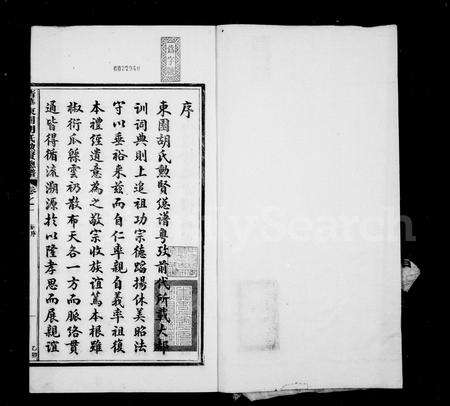 序
東園胡氏勲賢總譜粤攷前代所載大都
訓詞典則上追祖功宗德蹈揚休美昭法
守以垂裕来兹而自仁率親自義率祖復
本禮經遺意為之敬宗收族誼篤本根雖
椒衍瓜緜雲礽散布天各一方而脈络貫
通皆得循流溯源於以隆孝思而展親誼
6072940
MySearch